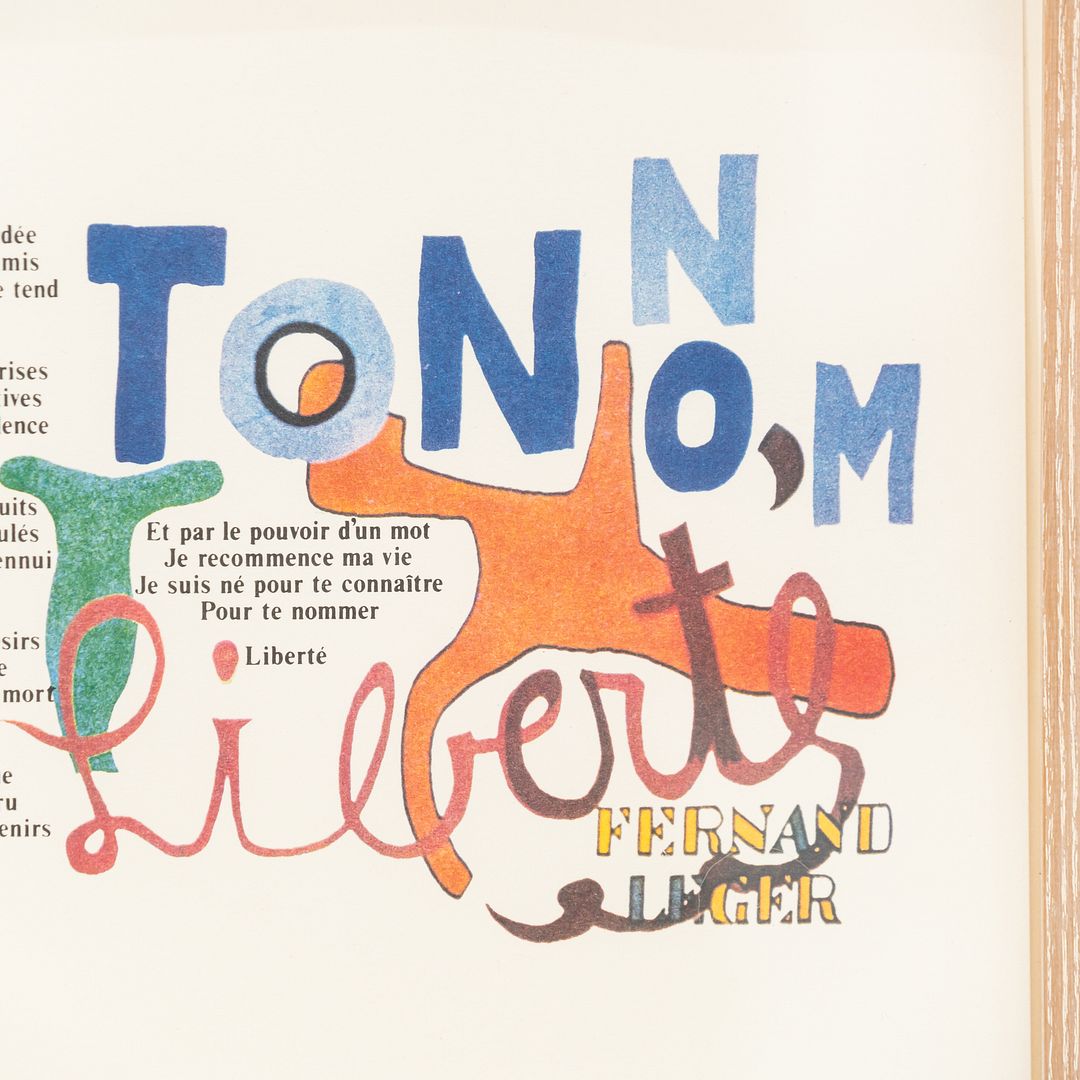 dée
mis
e tend
rises
ives
lence
uits
ulés
ennui
sirs
e
mort
e
ru
enirs
TON NOM
Et par le pouvoir d'un mot
Je recommence ma vie
Je suis né pour te connaître
Pour te nommer
Liberté
Liberté
FERNAND
LEGER